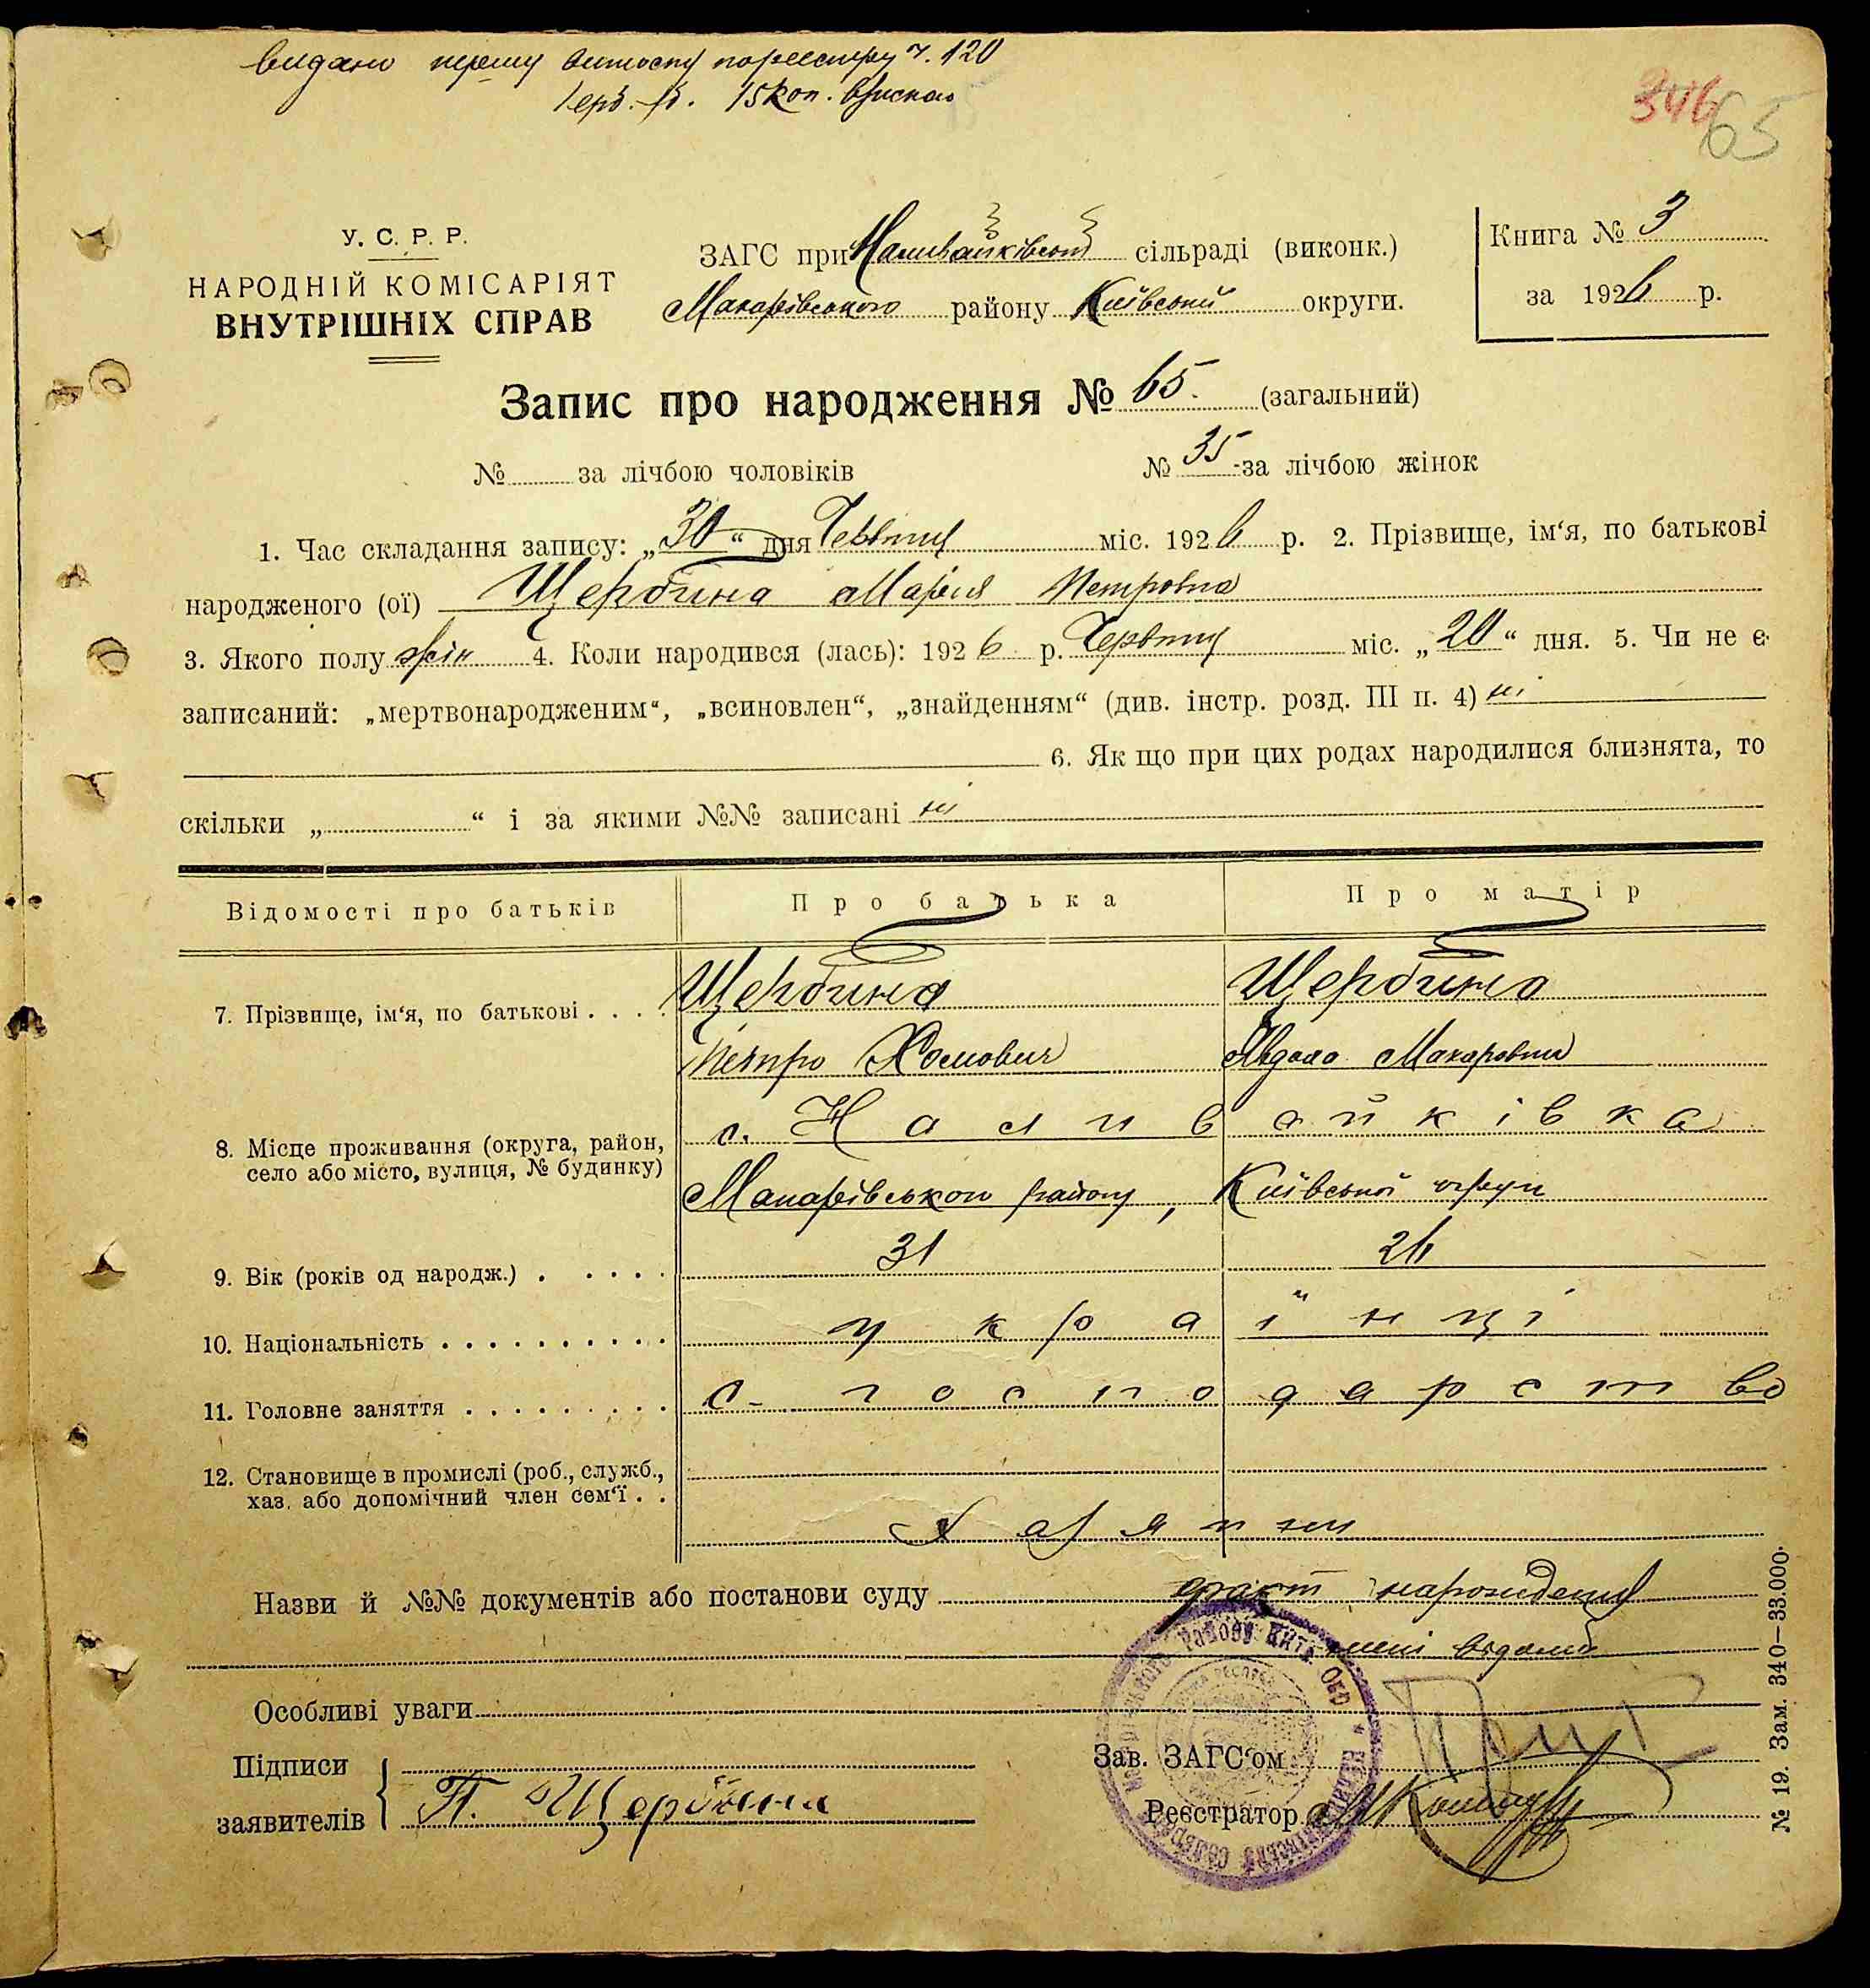 видано першу виписку по реєстру ч. 120
Герб. зб. 15 коп. взискано
346
65
У. С. Р. Р.
НАРОДНІЙ КОМІСАРІЯТ
ВНУТРІШНІХ СПРАВ
ЗАГС при Наливайківській сільраді (виконк.)
Макарівського району Київської округи.
Книга № 3
за 1926 р.
Запис про народження № 65. (загальний)
№ за лічбою чоловіків № 35 за лічбою жінок
1. Час складання запису: „30“ дня Червня міс. 1926 р. 2. Прізвище, ім‘я, по батькові
народженого (ої) Щербина Марія Петровна
3. Якого полу жін 4. Коли народився (лась): 1926 р. Червня міс. „20“ дня. 5. Чи не є
записаний: „мертвонародженим“, „всиновлен“, „знайденням“ (див. інстр. розд. III п. 4) ні
6. Як що при цих родах народилися близнята, то
скільки „ “ і за якими №№ записані ні
Відомості про батьків Про батька Про матір
7. Прізвище, ім‘я, по батькові . . . . Щербина Щербина
Петро Хомович Явдоха Макаровна
8. Місце проживання (округа, район, село або місто, вулиця, № будинку) с. Наливайківка
Макарівського району, Київської округи
9. Вік (років од народж.) . . . . . 31 26
10. Національність . . . . . . . . . . українці
11. Головне заняття . . . . . . . . . с. господарство
12. Становище в промислі (роб., служб.,
хаз. або допомічний член сем‘ї . .
Назви й №№ документів або постанови суду факт народження
мені відомий
Особливі уваги
Підписи
заявителів П. Щербина
Зав. ЗАГС‘ом
Реєстратор
№ 19. Зам. 340—33.000.